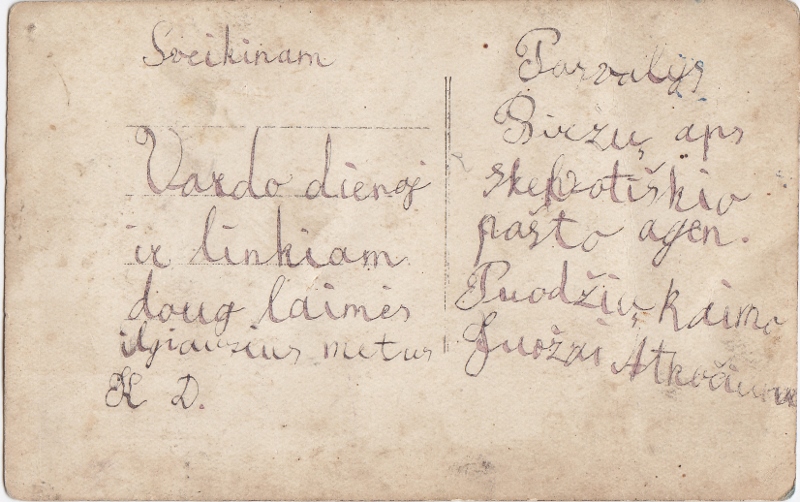 Sveikinam
Vardo dienoj
ir linkiam
doug laimės
ilgiausius metus
K D.
Parvalys
Biržų aps
pašto agen.
Puodžių kaimo
Juozai